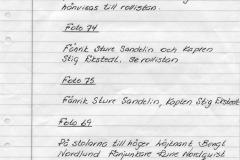 hänvisas till rollistan.
Foto 74
Fänrik Sture Sandelin och Kapten
Stig Ekstedt. Se rollistan
Foto 75.
Fänrik Sture Sandelin, Kapten Stig Ekstedt
Foto 69
På stolarna till höger Löjtnant, Bengt
Nordlund Fanjunkare Rune Nordqvist